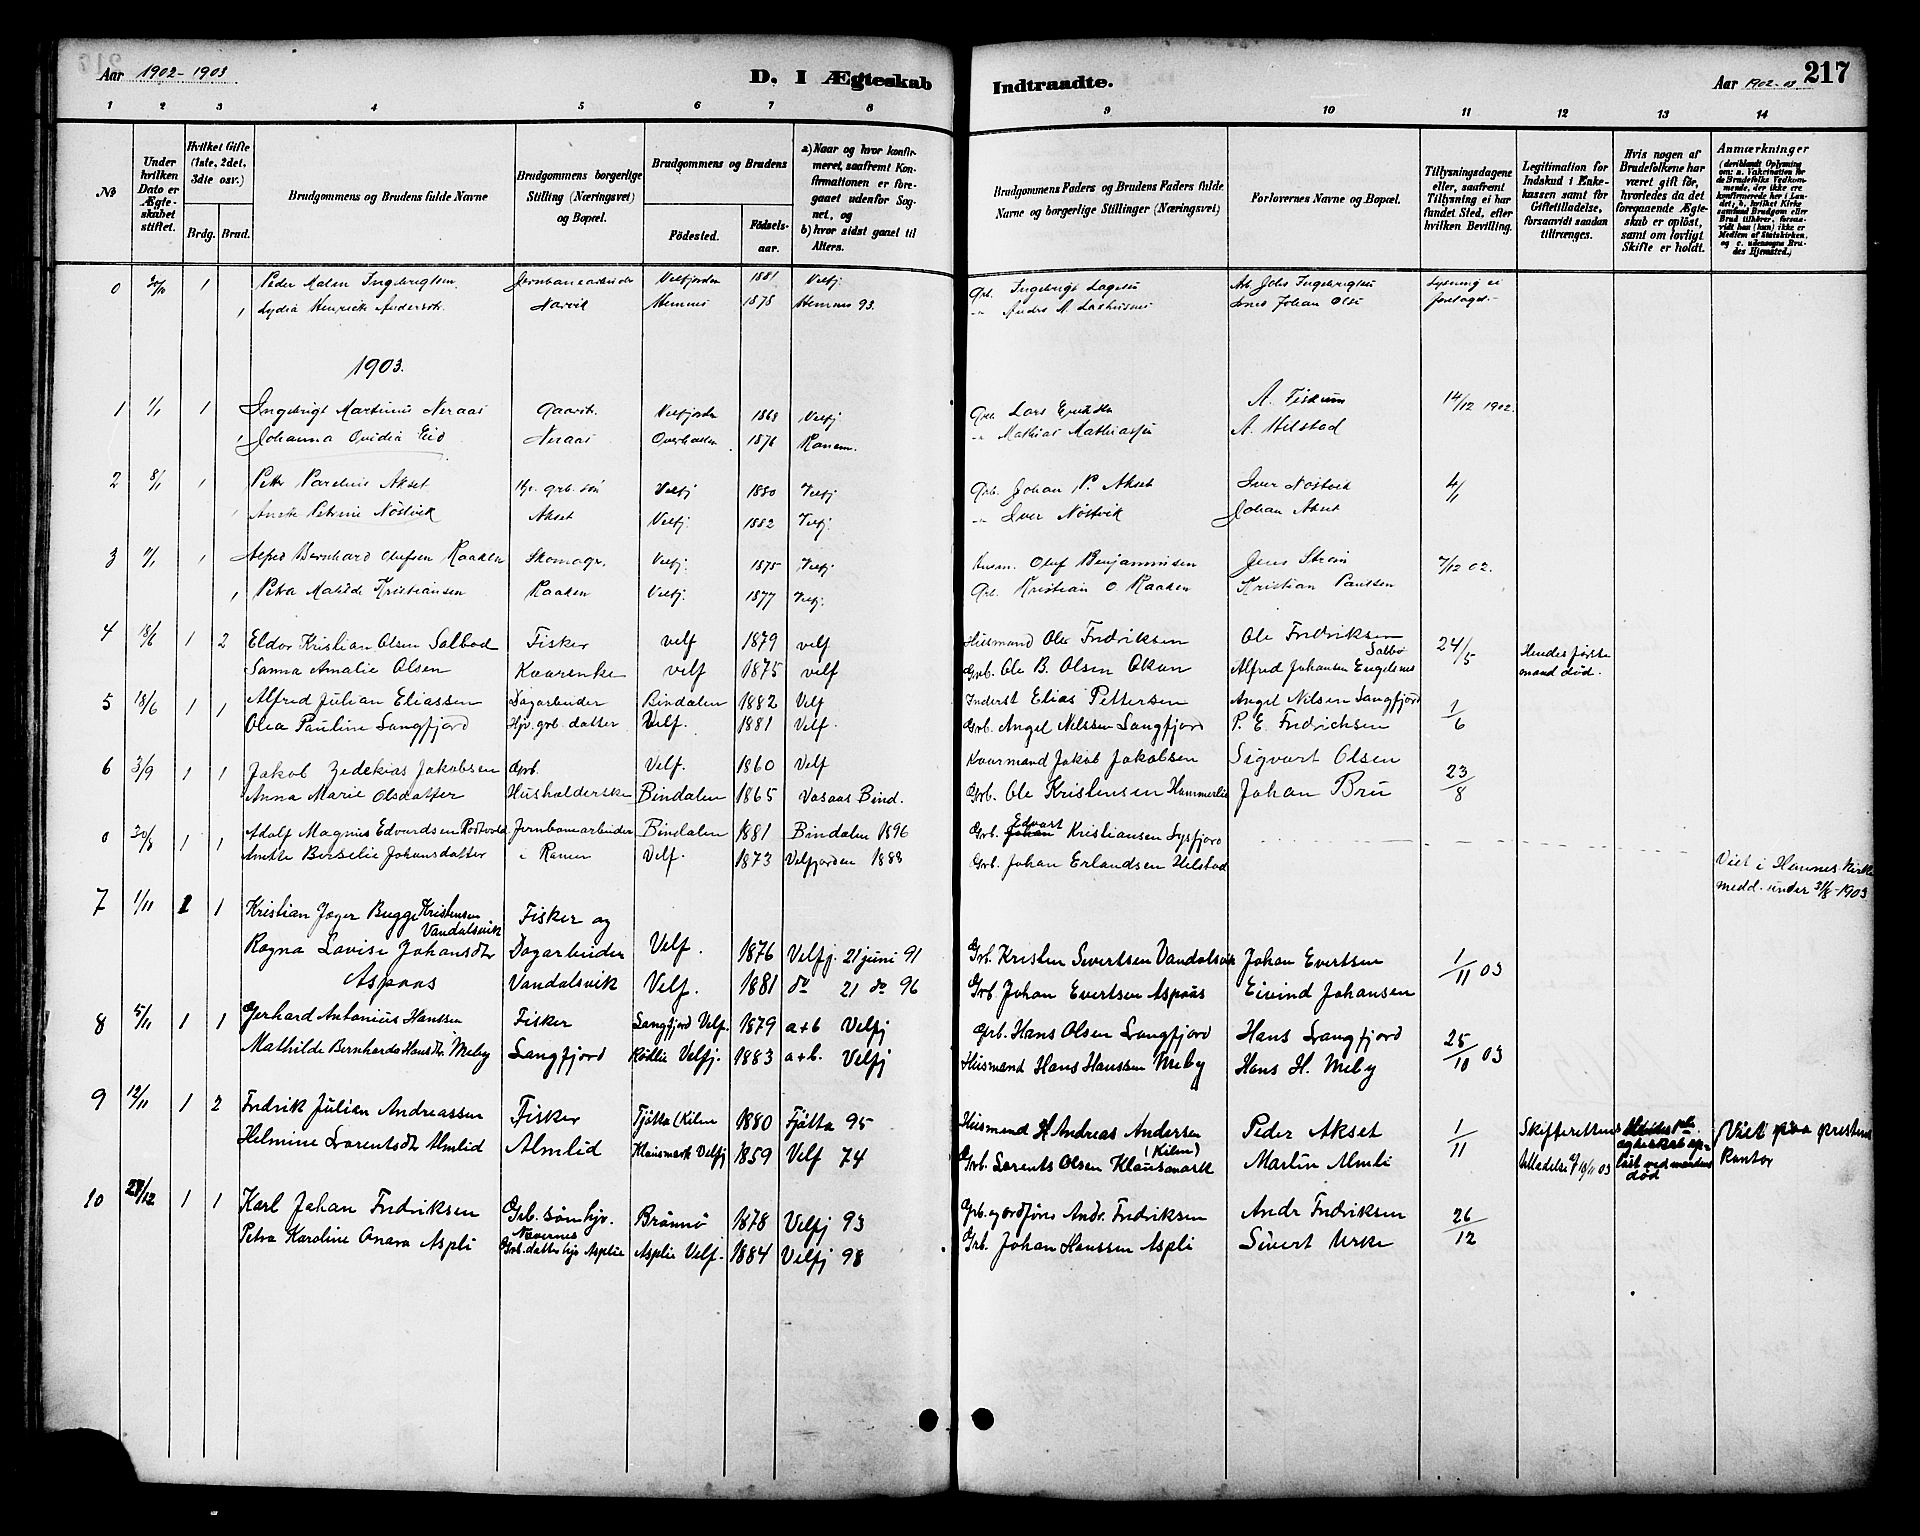 Aar 1902-1903
D. I Ægteskab Indtraadte.
Aar 1902-03
217
1 2 3 4 5 6 7 8 9 10 11 12 13 14
№
Under hvilken Dato er Ægteskabet stiftet.
Hvilket Gifte (1ste, 2det, 3die osv.)
Brdg. Brud.
Brudgommens og Brudens fulde Navne
Brudgommens borgerlige Stilling (Næringsvei) og Bopæl.
Brudgommens og Brudens
Födested.
Födselsaar.
a) Naar og hvor konfirmeret, saafremt Konfirmationen er foregaaet udenfor Sognet, og
b) hvor sidst gaaet til Alters.
Brudgommens Faders og Brudens Faders fulde Navne og borgerlige Stillinger (Næringsvei)
Forlovernes Navne og Bopæl.
Tillysningsdagene eller, saafremt Tillysning ei har fundet Sted, efter hvilken Bevilling.
Legitimation for Indskud i Enkekassen samt for Giftetilladelse, forsaavidt saadan tiltrænges.
Hvis nogen af Brudefolkene har været gift før, hvorledes da det foregaaende Ægteskab er oplöst, samt om lovligt Skifte er holdt.
Anmærkninger
(deriblandt Oplysning om: a. Vakcination for de Brudefolks Vedkommende, der ikke ere konfirmerede her i Landet; b. hvilket Kirkesamfund Brudgom eller Brud tilhörer, forsaavidt han (hun) ikke er Medlem af Statskirken, og c. udensogns Brudes Hjemsted.)
0 30/10 1 Peder Ingebrigtsen Jernbanearbeider Velfjorden 1881 Velfj Grb. Ingebrigt Ingebrigtsen Lysning ei
1 Lydia Henrick Andersdt. Narvik Hemnes 1878 Hemnes 93. " Anders A. Johan Olsen foretaget.-
1903.
1 1/1 1 Ingebrigt Martinus Neraas Gaardb. Velfjorden 1868 Velfj Grb. Lars A. Fiskum 14/12 1902.
1 Johanna Ovidia Eid Neraas Overhallen 1876 Ranem. " Mathias Mathiassen A. Hilstad
2 8/1 1 Peter Parelius Akset Hj. grb. søn Velfj 1880 Velfj Grb. Johan P. Akset Iver Nöstvik 4/1
1 Anette Petrine Nöstvik Akset Velfj. 1882 Velfj. " Iver Nöstvik Johan Akset
3 11/1 1 Alfred Bernhard Olufsen Kaaken Skomagr. Velfj. 1875 Velfj Husm. Oluf Benjaminsen Jens Ström 7/12 02.
1 Petra Matilde Kristiansen Kaaken Velfj. 1877 Velfj. Grb. Kristian O. Kaaken Kristian Paulsen
4 18/6 1 2 Eldor Kristian Olsen Salbod Fisker velf 1879 velf Husmand Ole Fredriksen Ole Fredriksen Salbø 24/5 Hendes förste
Sanna Amalie Olsen Kvarenke velf 1875 velf Grb. Ole B. Olsen Okan Alfred Johansen Engelsnes mand död.
5 18/6 1 1 Alfred Julian Eliassen Dagarbeider Bindalen 1882 Velf Inderst Elias Pettersen Angel Nilsen Langfjord 1/6
Olea Pauline Langfjord Hjv. grb. datter Velf. 1881 Velf. Grb. Angel Nilssen Langfjord P. E. Fredrichsen
6 3/9 1 1 Jakob Zedekias Jakobsen Grb. Velf. 1860 Velf Kaarmand Jakob Jakobsen Sigvart Olsen 23/8
Anna Marie Olsdatter Husholderske Bindalen 1865 Vasaas Bind. Grb. Ole Kristensen Hammerlie Johan Bru
0 30/8 1 1 Adolf Magnus Edvardsen Jernbanearbeider Bindalen 1881 Bindalen 1896 Grb. Edvart Kristiansen
Anette Berselie Johansdatter i Ranen Velf. 1873 Velfjorden 1888 Grb. Johan Erlandsen Hilstad Viet i Hemnes Kirke medd. under 31/8-1903
7 1/11 1 1 Kristian Jøger Bugge Kristensen Vandalsvik Fisker og Velf. 1876 Velfj. 21 juni 91 Grb. Kristen Sivertsen Vandalsvik Johan Evertsen 1/11 03
Ragna Lovise Johansdtr Aspaas Dagarbeider Vandalsvik Velf. 1881 do 21 do 96 Grb Johan Evertsen Aspaas Eivind Johansen
8 5/11 1 1 Gerhard Antonius Hanssen Fisker Langfjord Velf. 1879 a+b Velfj Grb. Hans Olsen Langfjord Hans Langfjord 25/10 03
Mathilde Bernharda Hansdtr. Meby Langfjord Rödlie Velfj. 1883 a+b. Velfj Husmand Hans Hanssen Meby Hans H. Meby
9 12/11 1 2 Fredrik Julian Andreassen Fisker Tjøtta (Kilen 1880 Tjøtta 95 Husmand H Andreas Andersen (Kilen) Peder Akset 1/11 Skifterettens Viet paa prestens
Helmine Lorentsdt Almlid Almlid Klausmark Velfj 1859 Velf 74 Grb. Lorents Olsen Klausmark Martin Almli tilladelse af 10/11 03 ved mandens död Kontor
10 28/12 1 1 Karl Johan Fredriksen Grb. sön hjv. Nævernes Brönnö 1878 Velfj 93 Grb. og ordförer Andr. Fredriksen Andr Fredriksen 26/12
Petra Karoline Anara Aspli Grb. datter hjv Asplie Asplie Velf. 1884 Velfj 98 Grb. Johan Hanssen Aspli Sivert Urke